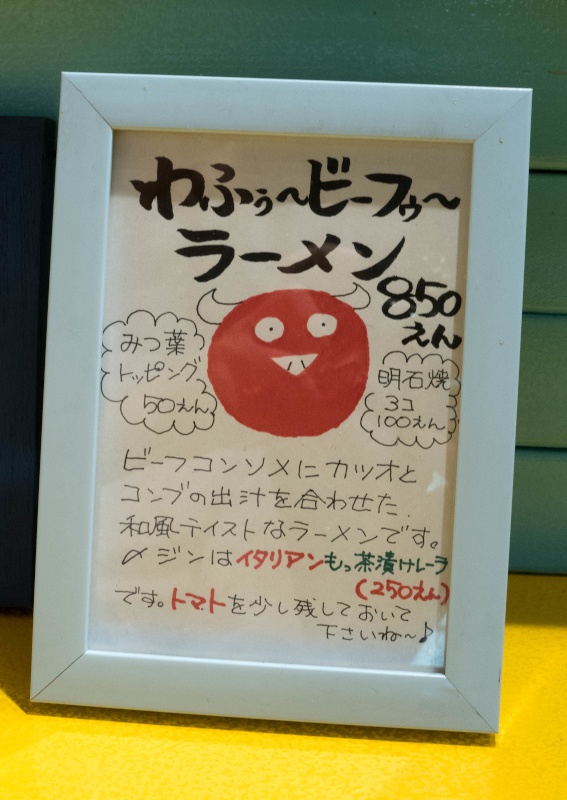 わふぅ～ビーフゥ～
ラーメン
850
えん
みつ葉
トッピング
50えん
明石焼
3コ
100えん
ビーフコンソメにカツオと
コンブの出汁を合わせた.
和風テイストなラーメンです。
〆ジンはイタリアンもっ茶漬けレーラ
(250えん)
です。トマトを少し残しておいて
下さいね～♪